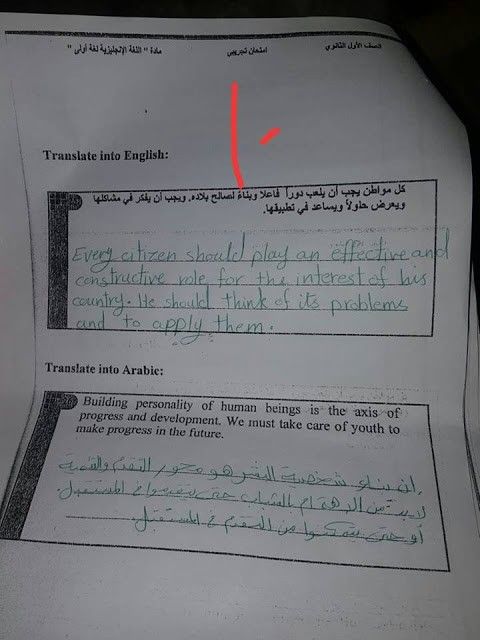 الصف الأول الثانوي امتحان تجريبي مادة " اللغة الإنجليزية لغة أولى "
Translate into English:
كل مواطن يجب أن يلعب دوراً فاعلا وبناءً لصالح بلاده. ويجب أن يفكر في مشاكلها
ويعرض حلولاً ويساعد في تطبيقها.
Every citizen should play an effective and
constructive role for the interest of his
country. He should think of its problems
and to apply them.
Translate into Arabic:
Building personality of human beings is the axis of
progress and development. We must take care of youth to
make progress in the future.
إن بناء شخصية البشر هو محور التقدم والتنمية
لابد من الاهتمام بالشباب حتى يتقدموا في المستقبل
أو حتى يتمكنوا من التقدم في المستقبل